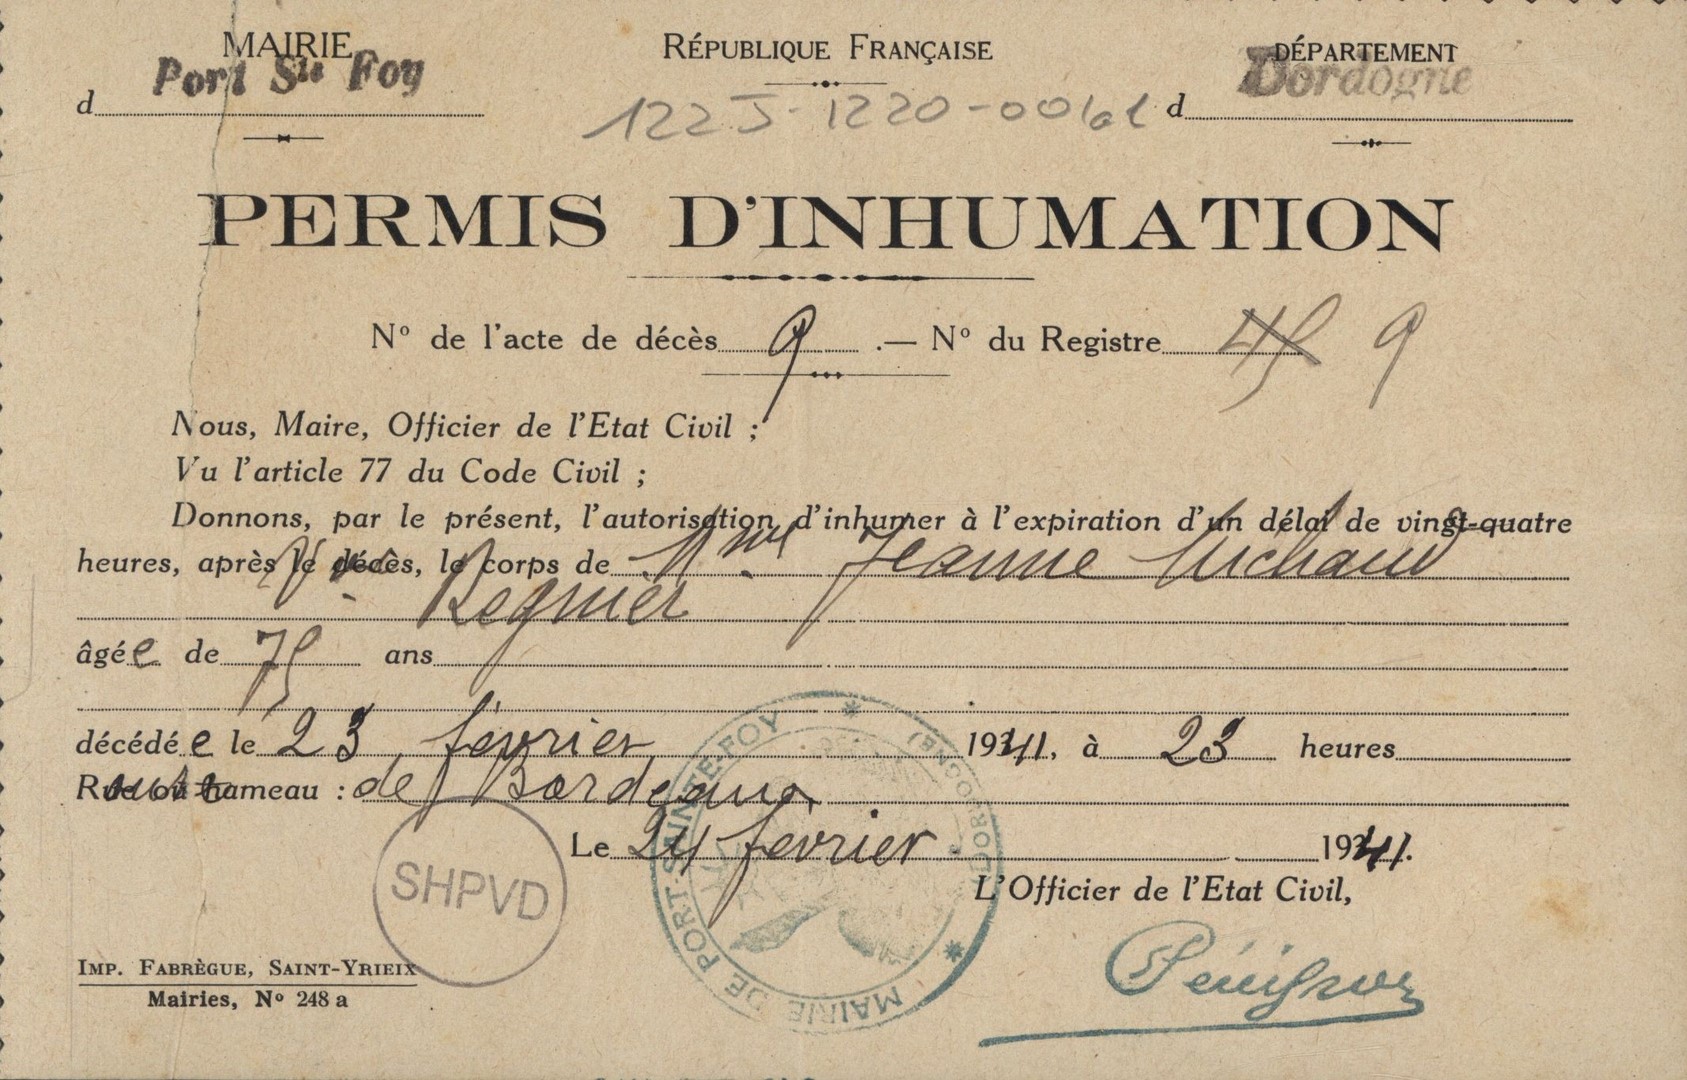 MAIRIE
Port Ste Foy
d
RÉPUBLIQUE FRANÇAISE
122J-1220-00161
DÉPARTEMENT
Dordogne
d
PERMIS D'INHUMATION
No de l'acte de décès 9 .— No du Registre 45 9
Nous, Maire, Officier de l'Etat Civil ;
Vu l'article 77 du Code Civil ;
Donnons, par le présent, l'autorisation d'inhumer à l'expiration d'un délai de vingt-quatre
heures, après le décès, le corps de Mme Jeanne Michaud
Vve Regnier
âgée de 75 ans
décédée le 23 février 1941, à 23 heures
Rue ou hameau : Route de Bordeaux
Le 24 février 1941.
L'Officier de l'Etat Civil,
SHPVD
MAIRIE DE PORT-SAINTE-FOY * (DORDOGNE) *
IMP. FABRÈGUE, SAINT-YRIEIX
Mairies, No 248 a